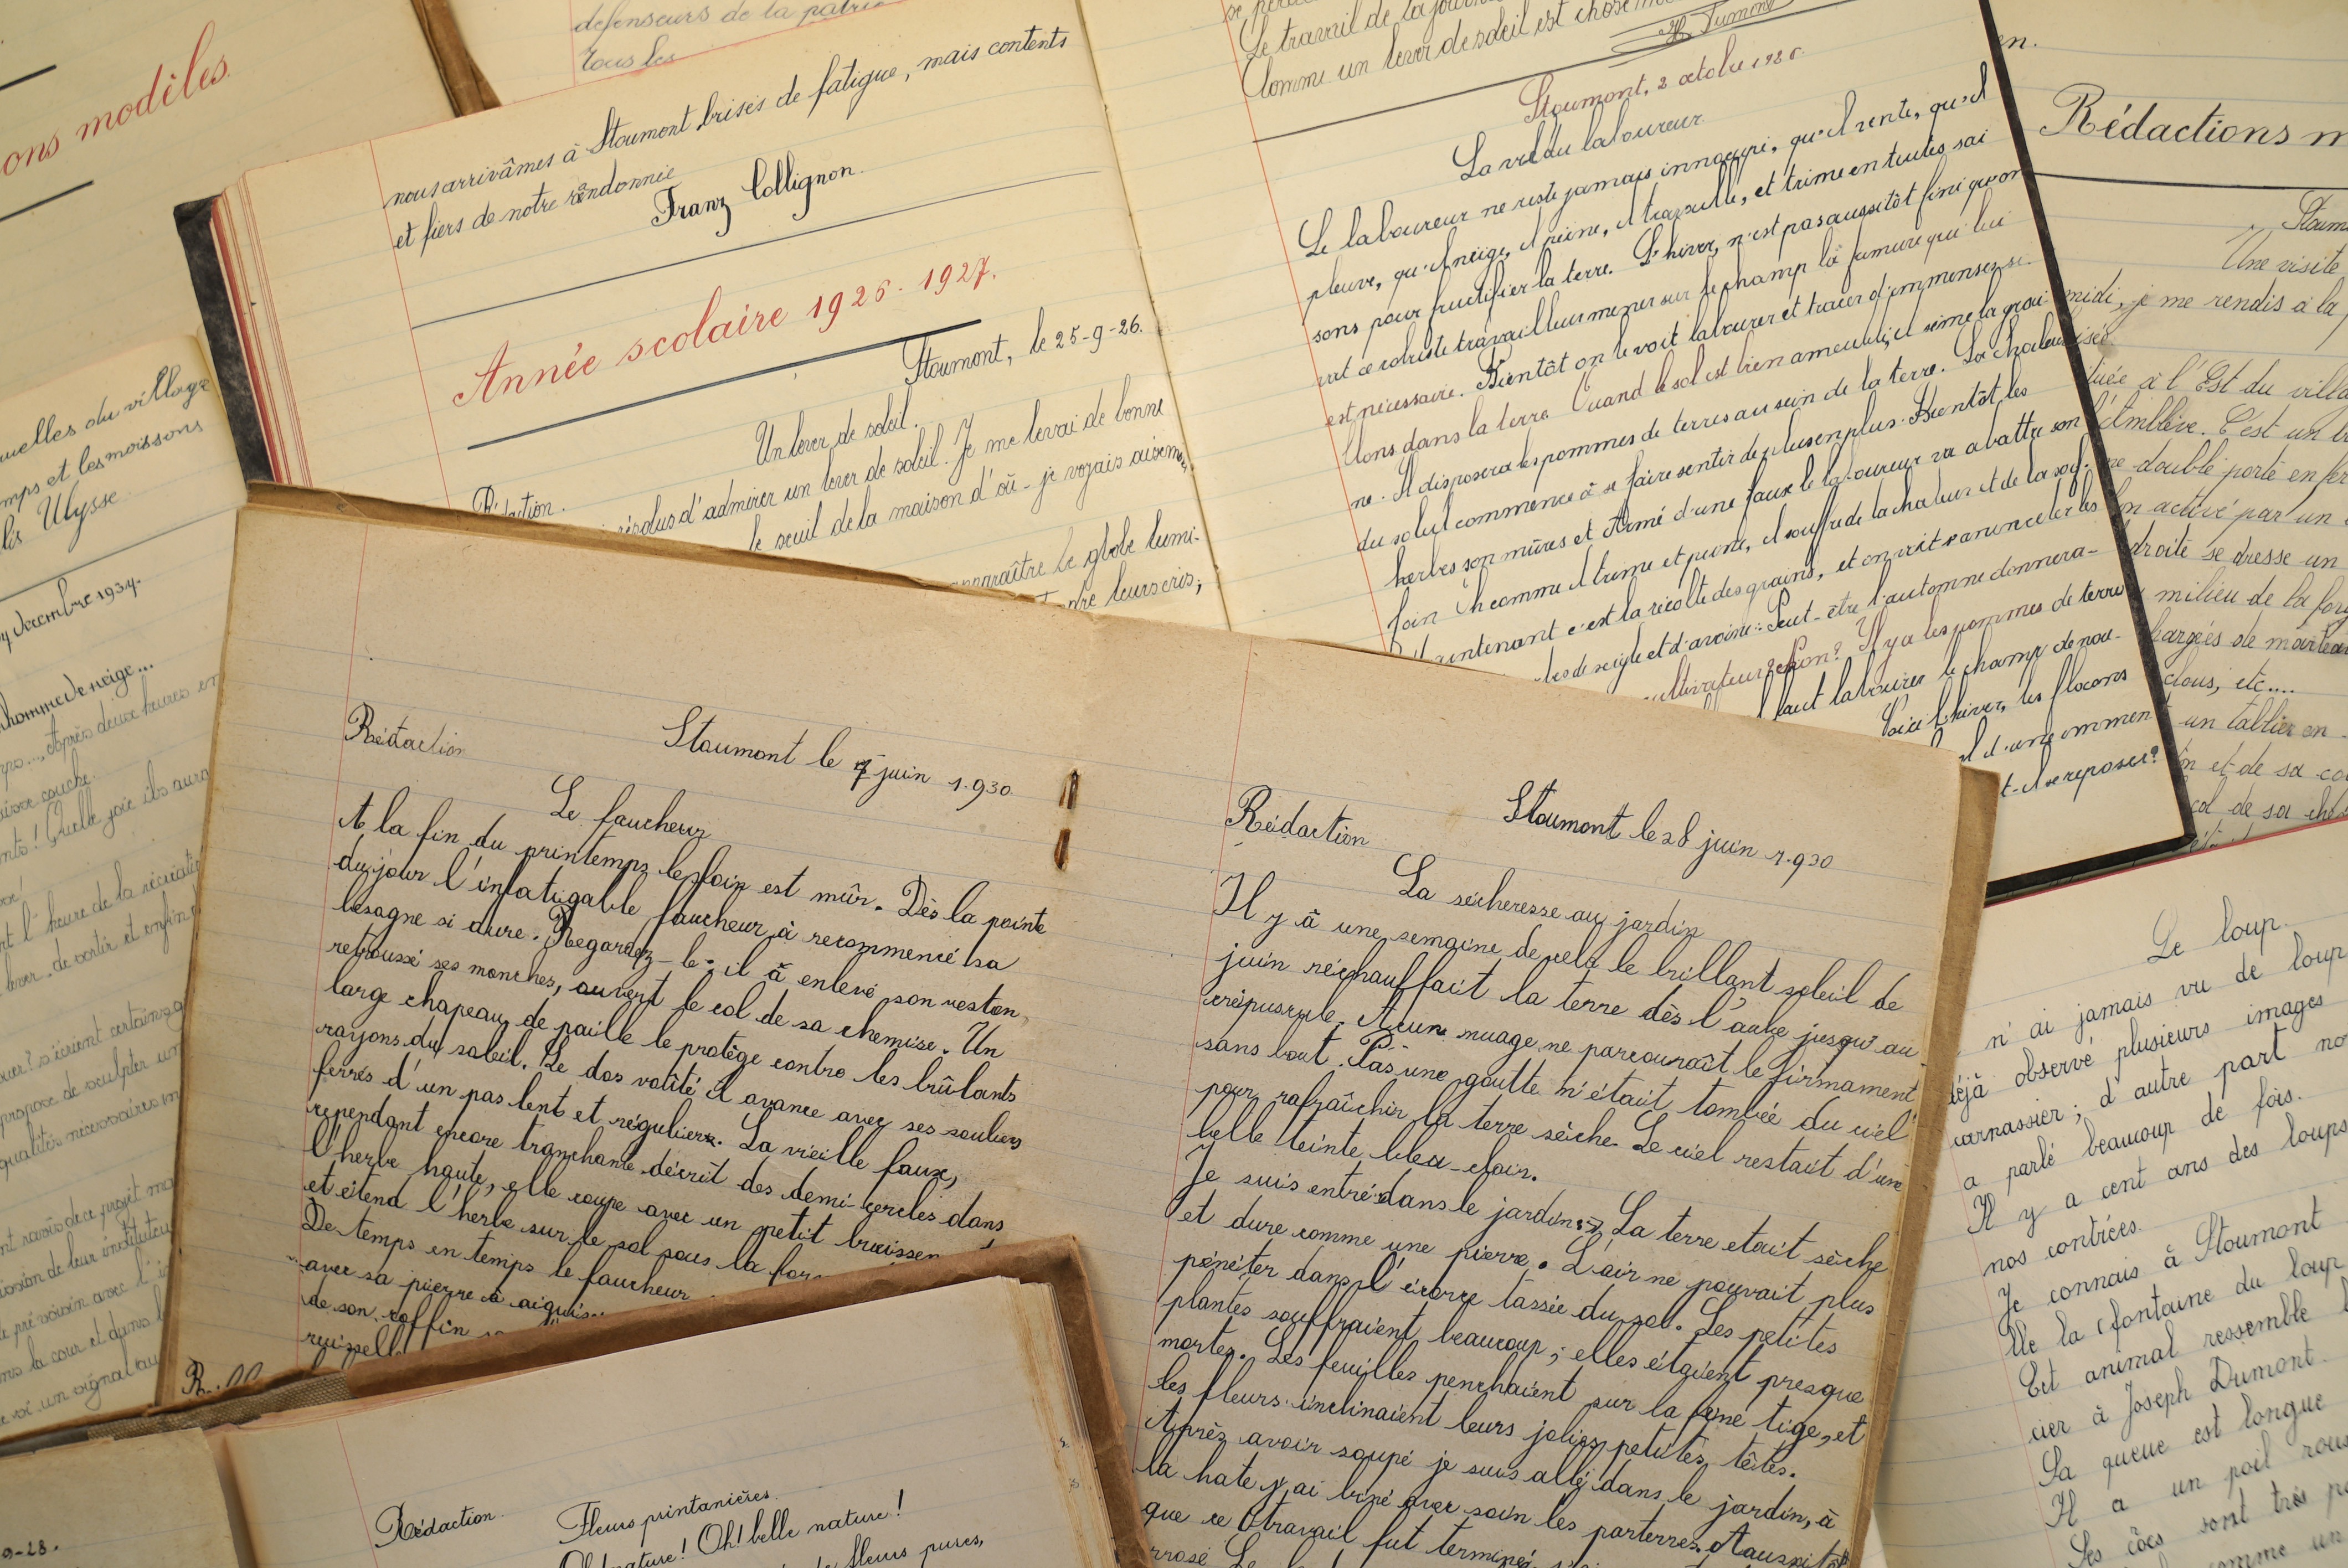 ons modèles.
defenseurs de la patrie
tous les
nous arrivâmes à Stoumont brisés de fatigue, mais contents
et fiers de notre randonnée
Franz Collignon.
Année scolaire 1926-1927.
Stoumont, le 25-9-26.
Un lever de soleil.
Rédaction.
résolus d'admirer un lever de soleil. Je me levai de bonne
le seuil de la maison d'où je voyais aisément
apparaître le globe lumi-
leurs cris,
Le travail de la journée
Comme un lever de soleil est chose
Dumont
Stoumont, 2 octobre 1926.
La vie du laboureur
Le laboureur ne reste jamais innoccupé, qu'il vente, qu'il
pleuve, qu'il neige, il peine, il travaille, et trime en toutes sai
sons pour fructifier la terre. L'hiver, n'est pas aussitôt fini qu'on
voit ce robuste travailleur mener sur le champ la fumure qui lui
est nécessaire. Bientôt on le voit labourer et tracer d'immenses si-
llons dans la terre. Quand le sol est bien ameubli, il sème la grai
ne. Il disposera les pommes de terres au sein de la terre. La chaleur
du soleil commence à se faire sentir de plus en plus. Bientôt les
herbes son mûres et Armé d'une faux le laboureur va abattre son
foin. Oh comme il trime et peine, il souffre de la chaleur et de la soif.
Maintenant c'est la récolte des grains, et on voit s'amonceler les
de seigle et d'avoine. Peut-être l'automne donnera-
cultivateur? Non? Il y a les pommes de terre
faut labourer le champ de nou-
Voici l'hiver, les flocons
d'une
t-il se reposer?
en.
Rédactions m
Stoum
Une visite
midi, je me rendis à la
tuée à l'Est du villa
l'Amblève. C'est un
ne double porte en fer
on activé par un
droite se dresse un
milieu de la forg
chargées de marteau
clous, etc....
un tablier en
n et de sa co
col de sa che
uelles du village
mps et les moissons
Ulysse
décembre 1934.
homme de neige...
Après deux heures en
couche.
! Quelle joie ils auro
l'heure de la récréatio
de sortir et enfin
s'écrient certains
propose de sculpter un
qualités nécessaires
ravis de ce projet
ission de leur instituteur
la cour et dans
un signal
Rédaction
Stoumont le 7 juin 1.930
Le faucheur
A la fin du printemps le foin est mûr. Dès la pointe
du jour l'infatigable faucheur à recommencé sa
besogne si dure. Regardez-le; il à enlevé son veston,
retroussé ses manches, ouvert le col de sa chemise. Un
large chapeau de paille le protège contre les brûlants
rayons du soleil. Le dos voûté il avance avec ses souliers
ferrés d'un pas lent et régulier. La vieille faux,
cependant encore tranchante décrit des demi-cercles dans
l'herbe haute, elle coupe avec un petit bruissement
et étend l'herbe sur le sol sous la for
De temps en temps le faucheur
avec sa pierre à aiguis
de son coffin
ruissell
Rédaction
Stoumont le 28 juin 1.930
La sécheresse au jardin
Il y à une semaine de cela le brillant soleil de
juin réchauffait la terre dès l'aube jusqu'au
crépuscule. Aucun nuage ne parcourait le firmament
sans bout. Pas une goutte n'était tombée du ciel
pour rafraîchir la terre sèche. Le ciel restait d'une
belle teinte bleu-clair.
Je suis entré dans le jardin. La terre etait sèche
et dure comme une pierre. L'air ne pouvait plus
pénéter dans l'écorce tassée du sol. Les petites
plantes souffraient beaucoup; elles étaient presque
mortes. Les feuilles penchaient sur la fine tige, et
les fleurs inclinaient leurs jolies petites têtes.
Après avoir soupé je suis allé dans le jardin, à
la hate j'ai biné avec soin les parterres. Aussitôt
que ce travail fut terminé
rrosé Le
Le loup.
n'ai jamais vu de loup
déjà observé plusieurs images
carnassier; d'autre part no
a parlé beaucoup de fois.
Il y a cent ans des loups
nos contrées.
Je connais à Stoumont
lle la fontaine du loup
Cet animal ressemble
cier à Joseph Dumont.
Sa queue est longue
Il a un poil rous
Ses côes sont très
comme un
Rédaction.
Fleurs printanières.
Oh! nature! Oh! belle nature!
de fleurs pures,
9-28.